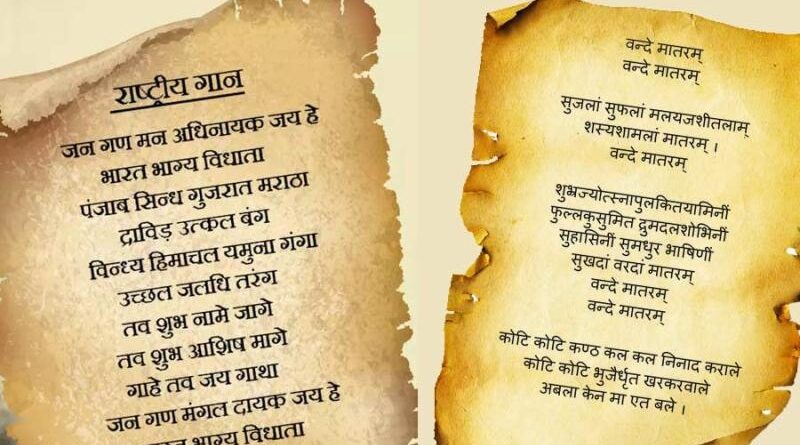 राष्ट्रीय गान
जन गण मन अधिनायक जय हे
भारत भाग्य विधाता
पंजाब सिन्ध गुजरात मराठा
द्राविड़ उत्कल बंग
विन्ध्य हिमाचल यमुना गंगा
उच्छल जलधि तरंग
तव शुभ नामे जागे
तव शुभ आशिष मागे
गाहे तव जय गाथा
जन गण मंगल दायक जय हे
भाग्य विधाता
वन्दे मातरम्
वन्दे मातरम्
सुजलां सुफलां मलयजशीतलाम्
शस्यशामलां मातरम् ।
वन्दे मातरम्
शुभ्रज्योत्स्नापुलकितयामिनीं
फुल्लकुसुमित द्रुमदलशोभिनीं
सुहासिनीं सुमधुर भाषिणीं
सुखदां वरदां मातरम्
वन्दे मातरम्
वन्दे मातरम्
कोटि कोटि कण्ठ कल कल निनाद कराले
कोटि कोटि भुजैर्धृत खरकरवाले
अबला केन मा एत बले ।